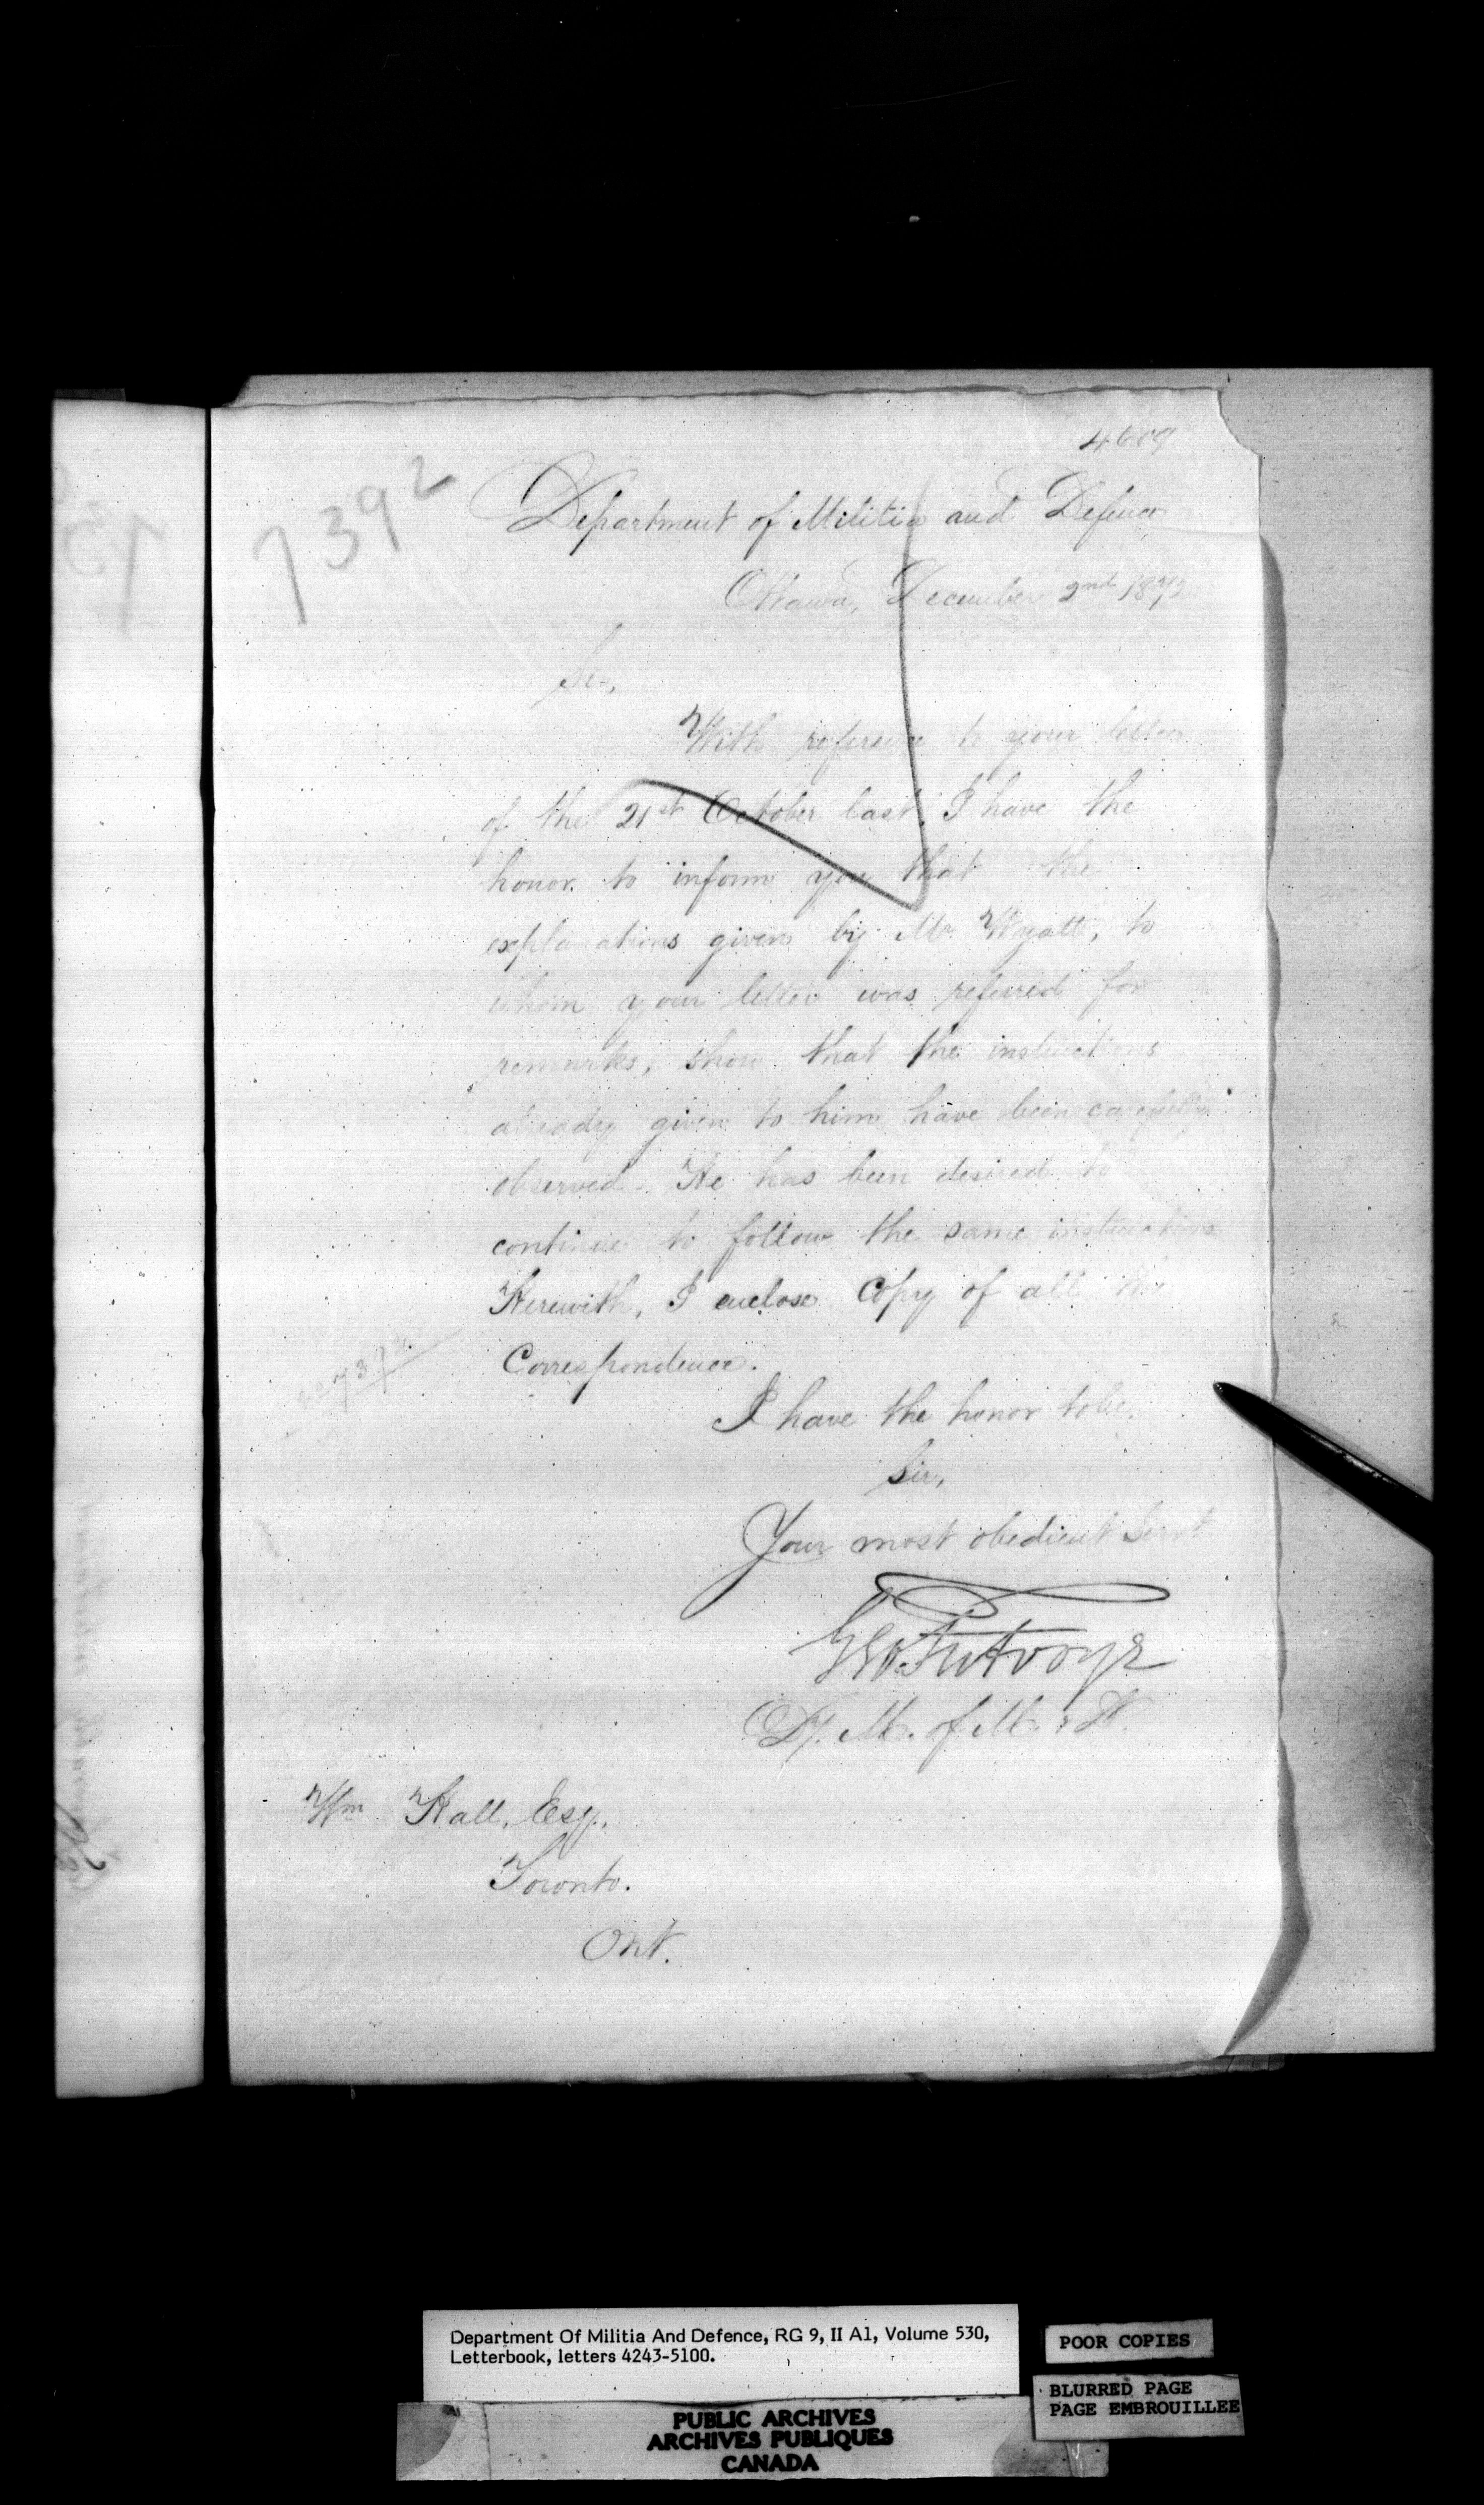 4609
7392
Department of Militia and Defence
Ottawa, December 2nd 1872
Sir,
With reference to your letter
of the 21st October last, I have the
honor to inform you that the
explanations given by Mr. Wyatt, to
whom your letter was referred for
remarks, show that the instructions
already given to him have been carefully
observed. He has been desired to
continue to follow the same instructions
Herewith, I enclose Copy of all the
Correspondence.
I have the honor to be,
Sir,
Your most obedient Servt
Geo. Futvoye
Dy. M. of M. & D.
Wm Hall, Esq.,
Toronto.
Ont.
Department Of Militia And Defence, RG 9, II A1, Volume 530,
Letterbook, letters 4243-5100.
POOR COPIES
BLURRED PAGE
PAGE EMBROUILLEE
PUBLIC ARCHIVES
ARCHIVES PUBLIQUES
CANADA